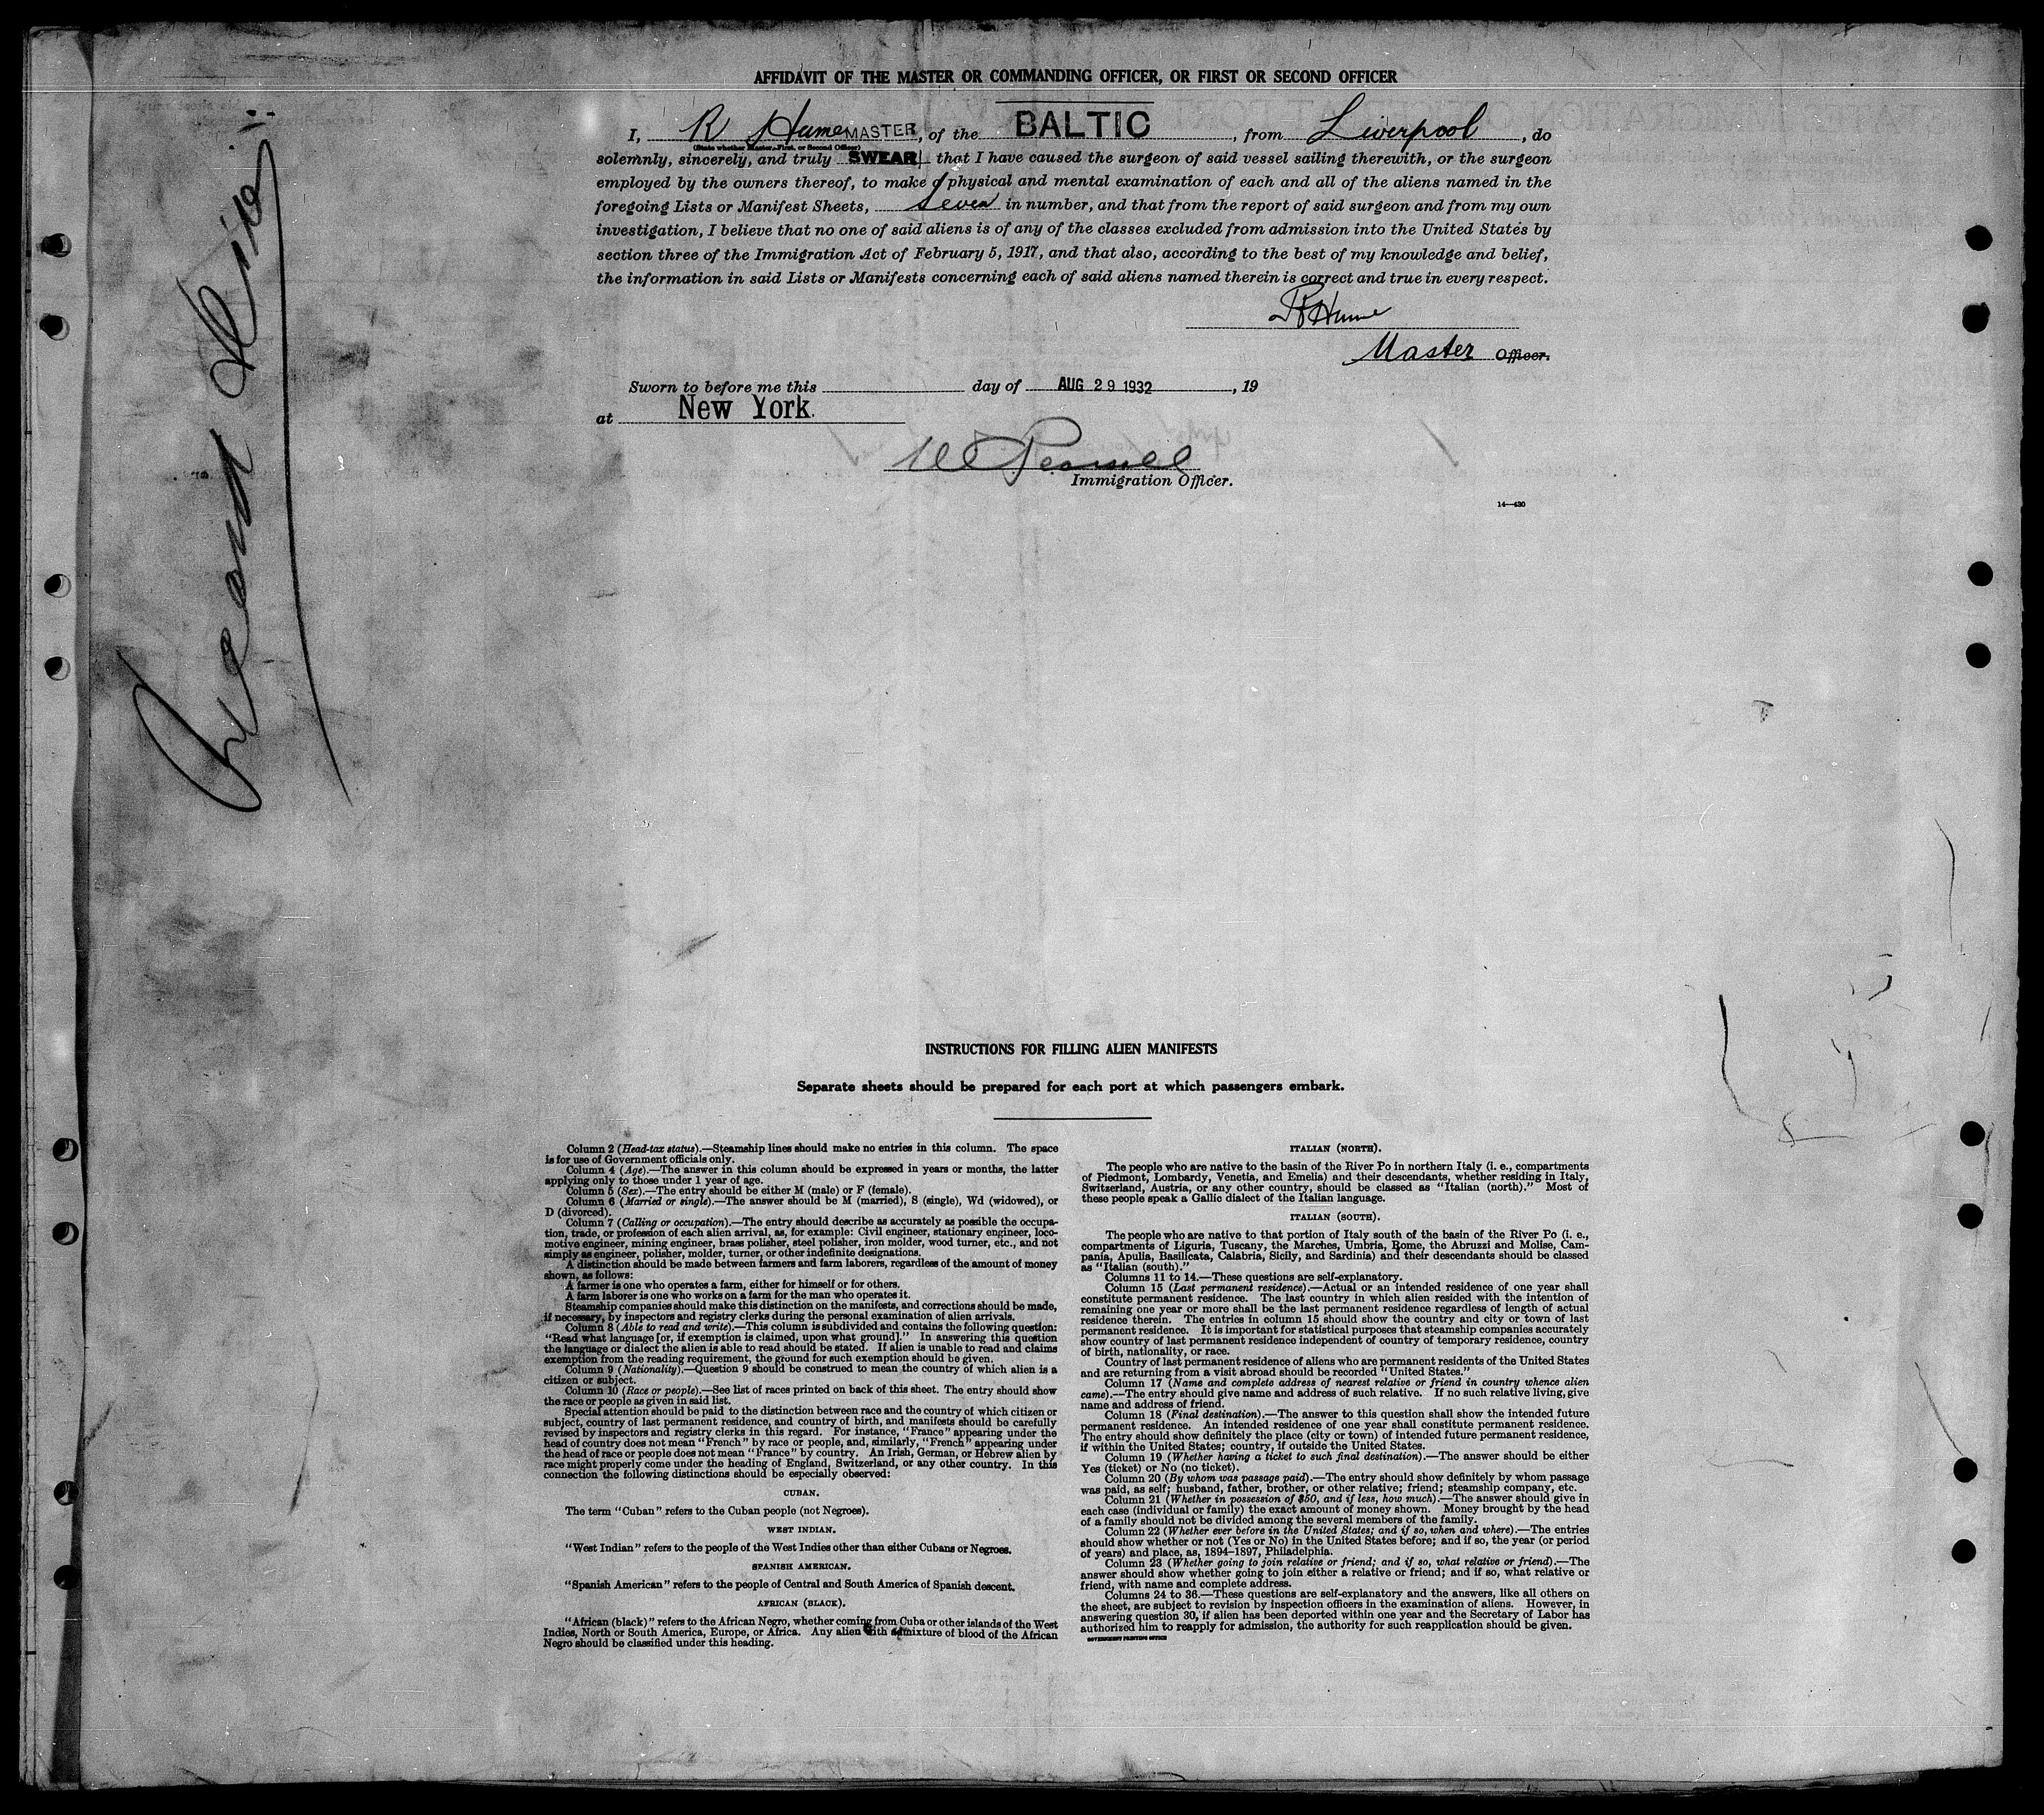 AFFIDAVIT OF THE MASTER OR COMMANDING OFFICER, OR FIRST OR SECOND OFFICER
I, R Hume MASTER, of the BALTIC, from Liverpool, do
(State whether Master, First, or Second Officer)
solemnly, sincerely, and truly SWEAR that I have caused the surgeon of said vessel sailing therewith, or the surgeon
employed by the owners thereof, to make a physical and mental examination of each and all of the aliens named in the
foregoing Lists or Manifest Sheets, seven in number, and that from the report of said surgeon and from my own
investigation, I believe that no one of said aliens is of any of the classes excluded from admission into the United States by
section three of the Immigration Act of February 5, 1917, and that also, according to the best of my knowledge and belief,
the information in said Lists or Manifests concerning each of said aliens named therein is correct and true in every respect.
R Hume
Master Officer.
Sworn to before me this day of AUG 29 1932, 19
at New York.
Immigration Officer.
14—430
INSTRUCTIONS FOR FILLING ALIEN MANIFESTS
Separate sheets should be prepared for each port at which passengers embark.
Column 2 (Head-tax status).—Steamship lines should make no entries in this column. The space
is for use of Government officials only.
Column 4 (Age).—The answer in this column should be expressed in years or months, the latter
applying only to those under 1 year of age.
Column 5 (Sex).—The entry should be either M (male) or F (female).
Column 6 (Married or single).—The answer should be M (married), S (single), Wd (widowed), or
D (divorced).
Column 7 (Calling or occupation).—The entry should describe as accurately as possible the occupa-
tion, trade, or profession of each alien arrival, as, for example: Civil engineer, stationary engineer, loco-
motive engineer, mining engineer, brass polisher, steel polisher, iron molder, wood turner, etc., and not
simply as engineer, polisher, molder, turner, or other indefinite designations.
A distinction should be made between farmers and farm laborers, regardless of the amount of money
shown, as follows:
A farmer is one who operates a farm, either for himself or for others.
A farm laborer is one who works on a farm for the man who operates it.
Steamship companies should make this distinction on the manifests, and corrections should be made,
if necessary, by inspectors and registry clerks during the personal examination of alien arrivals.
Column 8 (Able to read and write).—This column is subdivided and contains the following question:
"Read what language [or, if exemption is claimed, upon what ground]." In answering this question
the language or dialect the alien is able to read should be stated. If alien is unable to read and claims
exemption from the reading requirement, the ground for such exemption should be given.
Column 9 (Nationality).—Question 9 should be construed to mean the country of which alien is a
citizen or subject.
Column 10 (Race or people).—See list of races printed on back of this sheet. The entry should show
the race or people as given in said list.
Special attention should be paid to the distinction between race and the country of which citizen or
subject, country of last permanent residence, and country of birth, and manifests should be carefully
revised by inspectors and registry clerks in this regard. For instance, "France" appearing under the
head of country does not mean "French" by race or people, and, similarly, "French" appearing under
the head of race or people does not mean "France" by country. An Irish, German, or Hebrew alien by
race might properly come under the heading of England, Switzerland, or any other country. In this
connection the following distinctions should be especially observed:
CUBAN.
The term "Cuban" refers to the Cuban people (not Negroes).
WEST INDIAN.
"West Indian" refers to the people of the West Indies other than either Cubans or Negroes.
SPANISH AMERICAN.
"Spanish American" refers to the people of Central and South America of Spanish descent.
AFRICAN (BLACK).
"African (black)" refers to the African Negro, whether coming from Cuba or other islands of the West
Indies, North or South America, Europe, or Africa. Any alien with admixture of blood of the African
Negro should be classified under this heading.
ITALIAN (NORTH).
The people who are native to the basin of the River Po in northern Italy (i. e., compartments
of Piedmont, Lombardy, Venetia, and Emelia) and their descendants, whether residing in Italy,
Switzerland, Austria, or any other country, should be classed as "Italian (north)." Most of
these people speak a Gallic dialect of the Italian language.
ITALIAN (SOUTH).
The people who are native to that portion of Italy south of the basin of the River Po (i. e.,
compartments of Liguria, Tuscany, the Marches, Umbria, Rome, the Abruzzi and Molise, Cam-
pania, Apulia, Basilicata, Calabria, Sicily, and Sardinia) and their descendants should be classed
as "Italian (south)."
Columns 11 to 14.—These questions are self-explanatory.
Column 15 (Last permanent residence).—Actual or an intended residence of one year shall
constitute permanent residence. The last country in which alien resided with the intention of
remaining one year or more shall be the last permanent residence regardless of length of actual
residence therein. The entries in column 15 should show the country and city or town of last
permanent residence. It is important for statistical purposes that steamship companies accurately
show country of last permanent residence independent of country of temporary residence, country
of birth, nationality, or race.
Country of last permanent residence of aliens who are permanent residents of the United States
and are returning from a visit abroad should be recorded "United States."
Column 17 (Name and complete address of nearest relative or friend in country whence alien
came).—The entry should give name and address of such relative. If no such relative living, give
name and address of friend.
Column 18 (Final destination).—The answer to this question shall show the intended future
permanent residence. An intended residence of one year shall constitute permanent residence.
The entry should show definitely the place (city or town) of intended future permanent residence,
if within the United States; country, if outside the United States.
Column 19 (Whether having a ticket to such final destination).—The answer should be either
Yes (ticket) or No (no ticket).
Column 20 (By whom was passage paid).—The entry should show definitely by whom passage
was paid, as self; husband, father, brother, or other relative; friend; steamship company, etc.
Column 21 (Whether in possession of $50, and if less, how much).—The answer should give in
each case (individual or family) the exact amount of money shown. Money brought by the head
of a family should not be divided among the several members of the family.
Column 22 (Whether ever before in the United States; and if so, when and where).—The entries
should show whether or not (Yes or No) in the United States before; and if so, the year (or period
of years) and place, as, 1894–1897, Philadelphia.
Column 23 (Whether going to join relative or friend; and if so, what relative or friend).—The
answer should show whether going to join either a relative or friend; and if so, what relative or
friend, with name and complete address.
Columns 24 to 36.—These questions are self-explanatory and the answers, like all others on
the sheet, are subject to revision by inspection officers in the examination of aliens. However, in
answering question 30, if alien has been deported within one year and the Secretary of Labor has
authorized him to reapply for admission, the authority for such reapplication should be given.
GOVERNMENT PRINTING OFFICE